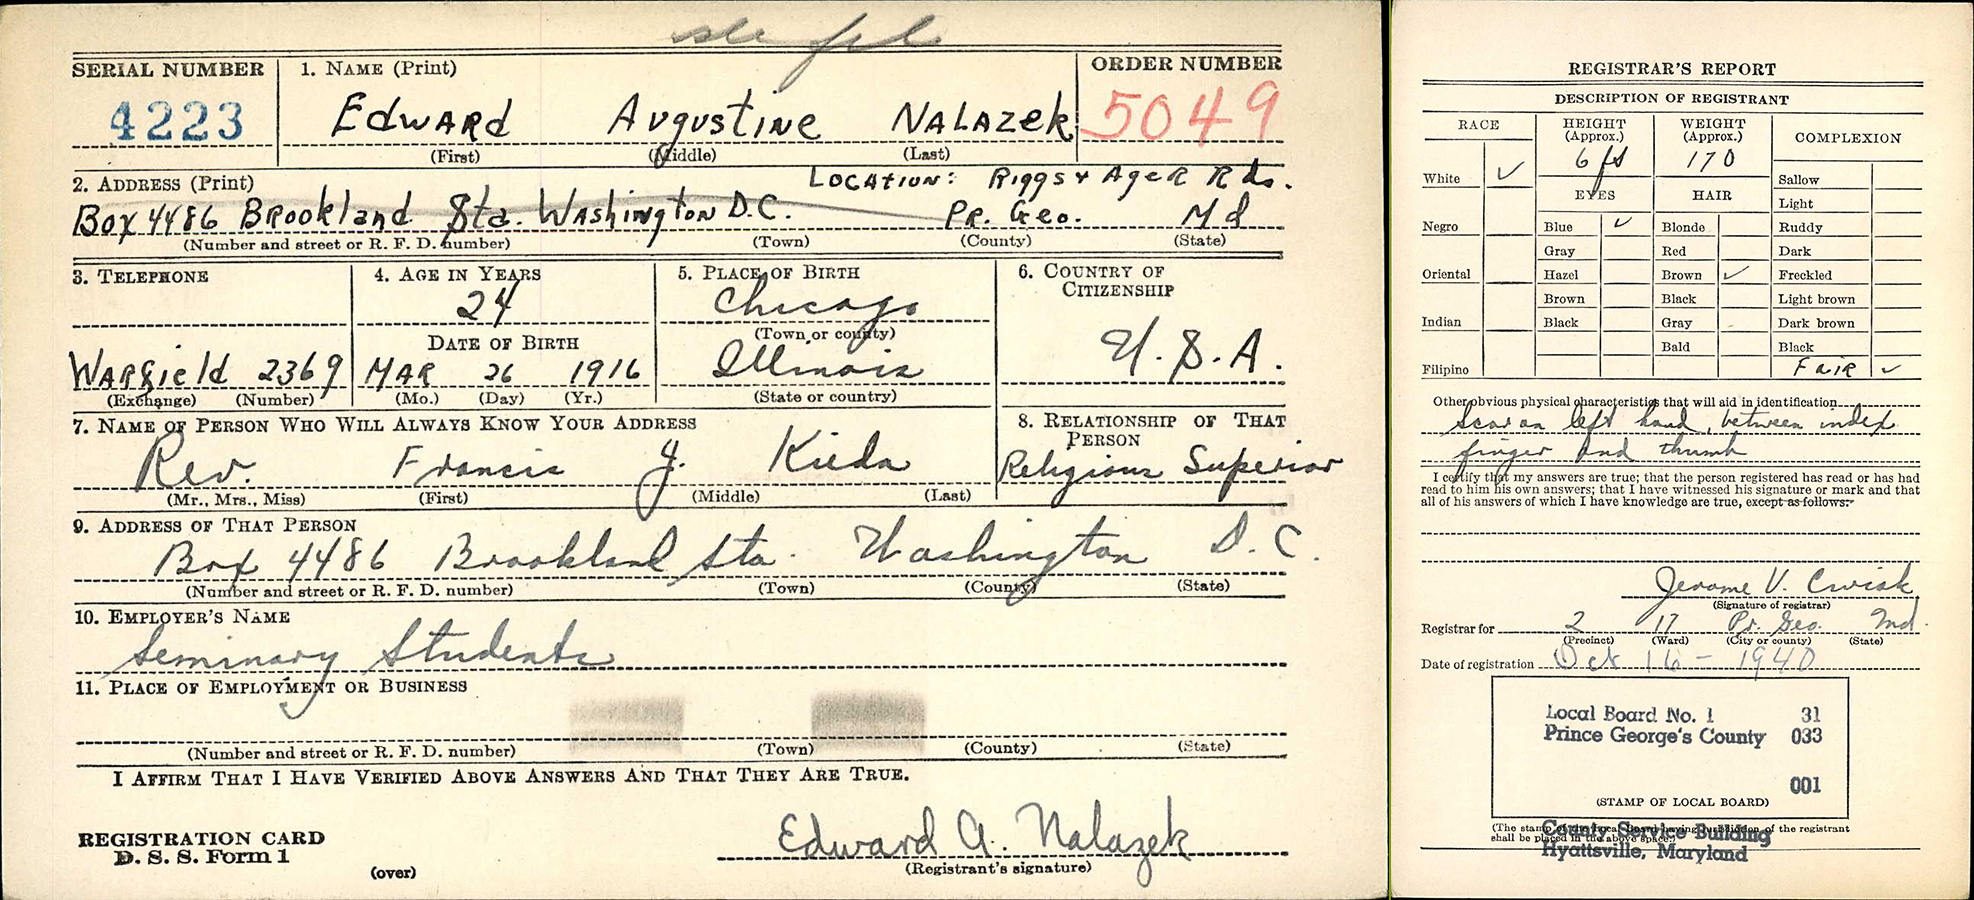 SERIAL NUMBER
4223
1. NAME (Print)
Edward Augustine Nalazek
(First) (Middle) (Last)
ORDER NUMBER
5049
2. ADDRESS (Print)
LOCATION: Riggs & Ager Rds.
Box 4486 Brookland Sta. Washington D.C. Pr. Geo. Md
(Number and street or R. F. D. number) (Town) (County) (State)
3. TELEPHONE
Warfield 2369
(Exchange) (Number)
4. AGE IN YEARS
24
DATE OF BIRTH
MAR 26 1916
(Mo.) (Day) (Yr.)
5. PLACE OF BIRTH
Chicago
(Town or county)
Illinois
(State or country)
6. COUNTRY OF
CITIZENSHIP
U.S.A.
7. NAME OF PERSON WHO WILL ALWAYS KNOW YOUR ADDRESS
Rev. Francis J. Kieda
(Mr., Mrs., Miss) (First) (Middle) (Last)
8. RELATIONSHIP OF THAT
PERSON
Religious Superior
9. ADDRESS OF THAT PERSON
Box 4486 Brookland Sta. Washington D.C.
(Number and street or R. F. D. number) (Town) (County) (State)
10. EMPLOYER'S NAME
Seminary Students
11. PLACE OF EMPLOYMENT OR BUSINESS
(Number and street or R. F. D. number) (Town) (County) (State)
I AFFIRM THAT I HAVE VERIFIED ABOVE ANSWERS AND THAT THEY ARE TRUE.
REGISTRATION CARD
D. S. S. Form 1
(over)
Edward A. Nalazek
(Registrant's signature)
REGISTRAR'S REPORT
DESCRIPTION OF REGISTRANT
RACE
White ✓
Negro
Oriental
Indian
Filipino
HEIGHT
(Approx.)
6 ft
WEIGHT
(Approx.)
170
EYES
Blue ✓
Gray
Hazel
Brown
Black
HAIR
Blonde
Red
Brown ✓
Black
Gray
Bald
COMPLEXION
Sallow
Light
Ruddy
Dark
Freckled
Light brown
Dark brown
Black
Fair ✓
Other obvious physical characteristics that will aid in identification
Scar on left hand, between index
finger and thumb
I certify that my answers are true; that the person registered has read or has had
read to him his own answers; that I have witnessed his signature or mark and that
all of his answers of which I have knowledge are true, except as follows:
Jerome V. Cwiak
(Signature of registrar)
Registrar for 2 17 Pr. Geo. Md.
(Precinct) (Ward) (City or county) (State)
Date of registration Oct 16 - 1940
Local Board No. 1 31
Prince George's County 033
001
(STAMP OF LOCAL BOARD)
(The stamp of the Local Board having jurisdiction of the registrant
shall be placed in the above space.)
County Service Building
Hyattsville, Maryland